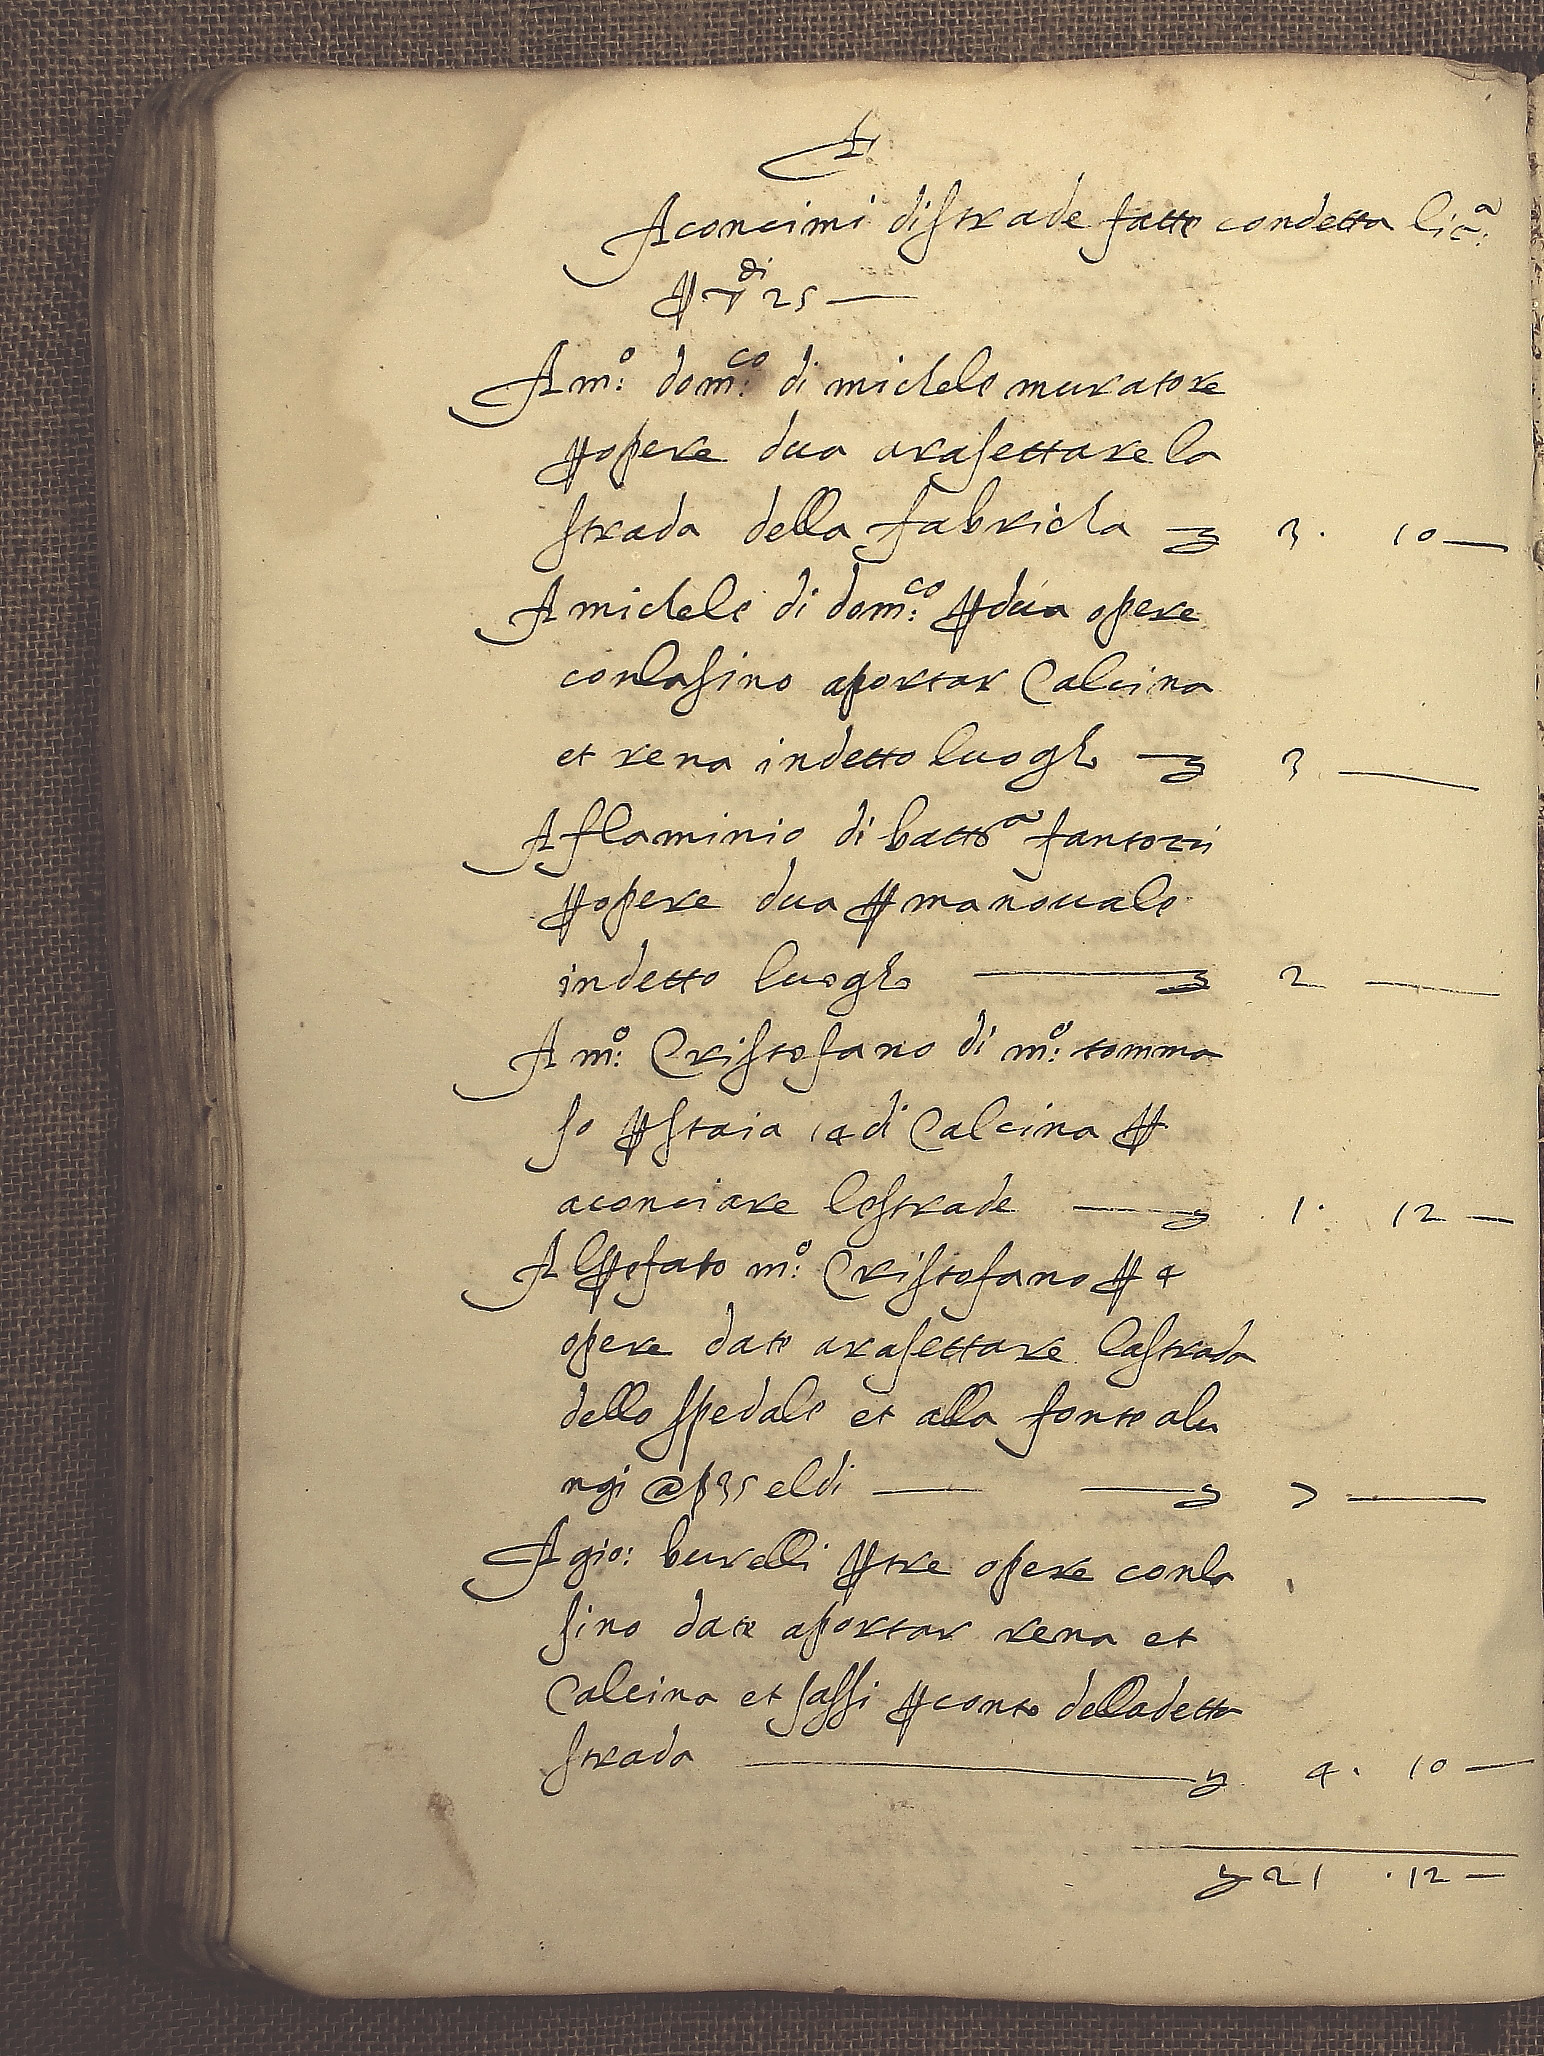 Aconcimi di strade fatte con detta lic.ª
p ▽di 25 —
A m.º dom.co di michele muratore
p opere dua a rasettare la
strada della fabricha — y 3. 10 —
A michele di dom.co p dua opere
con lasino a portar Calcina
et rena in detto luogho — y 3 —
A flaminio di batt.ª fantozzi
p opere dua p manovale
in detto luogho — y 2 —
A m.º Cristofano di m.º tomma
so p staia 14 di Calcina p
aconciare le strade — y 1. 12 —
Al prefato m.º Cristofano p 4
opere date a rasettare la strada
dello spedale et alla fonte alu
ngi a p 35 el di — y 7 —
A gio: burelli p tre opere con la
sino date a portar rena et
Calcina et sassi p conto della detta
strada — y 4. 10 —
y 21 .12 —